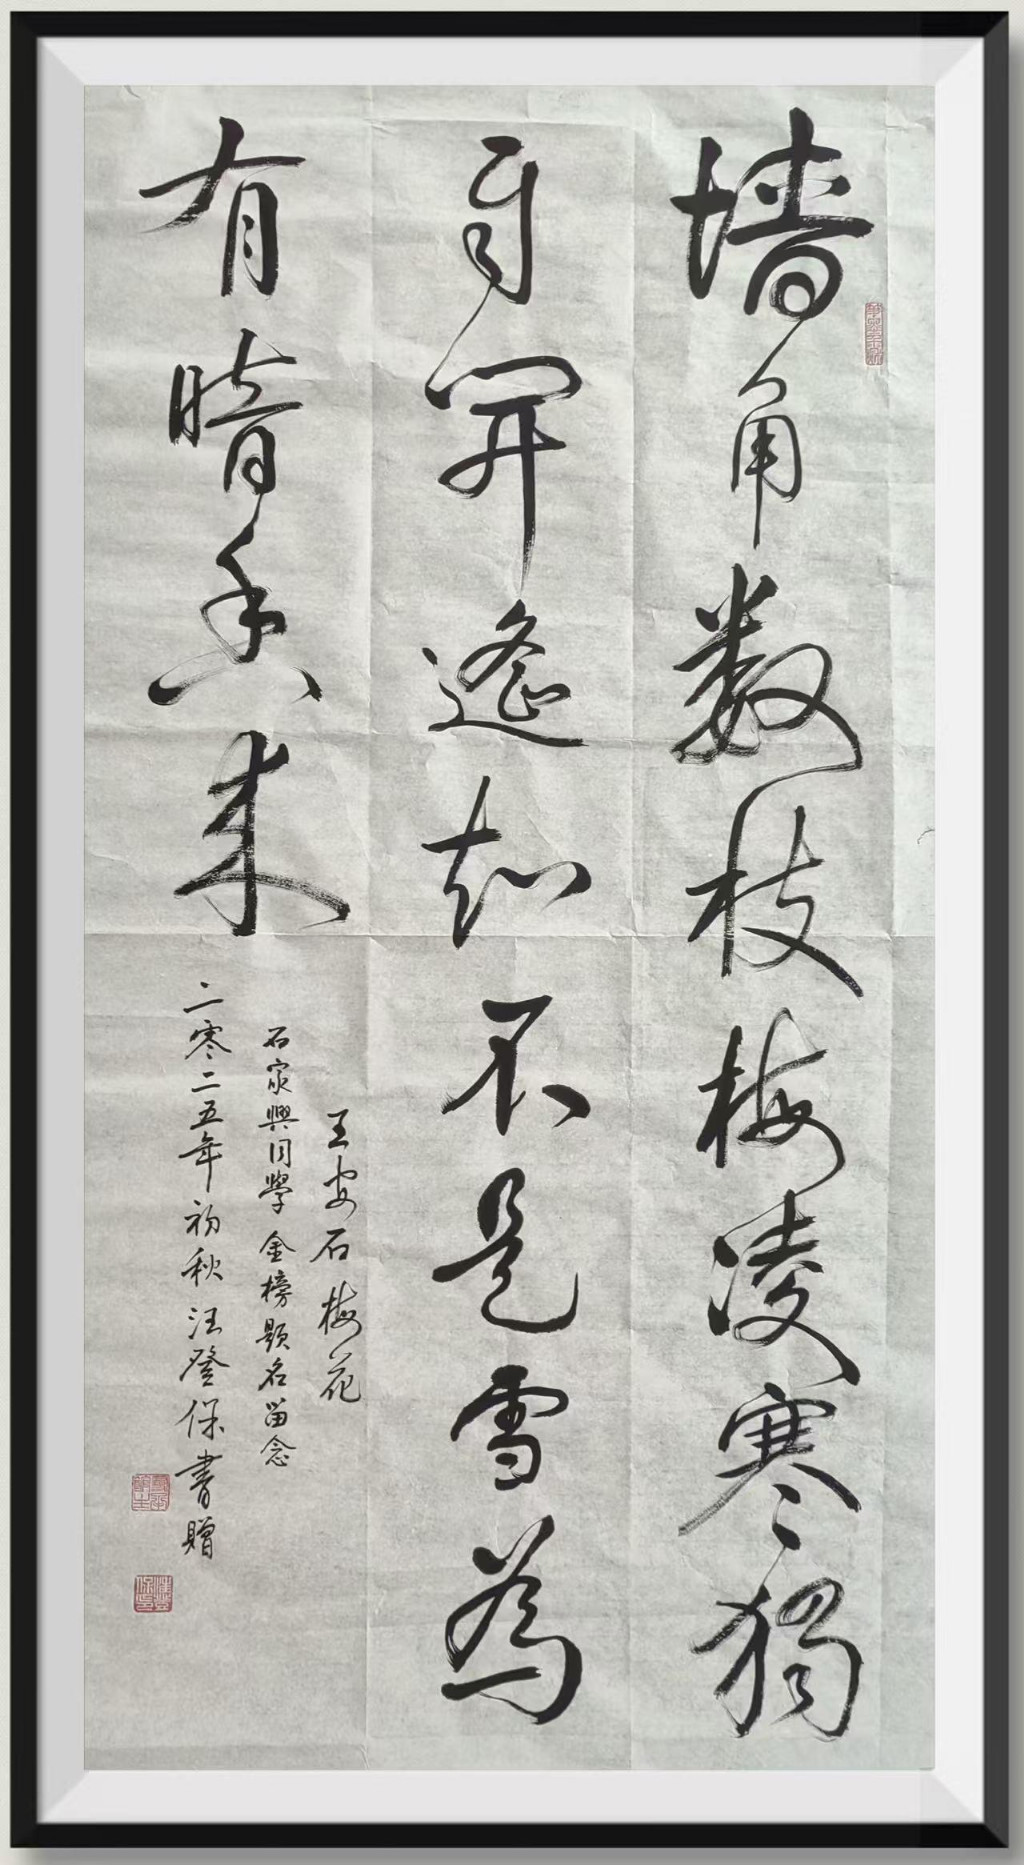 墙角数枝梅凌寒独
自開遙知不是雪為
有暗香来
王安石梅花
石家興同學金榜题名留念
二零二五年初秋汪登保書贈